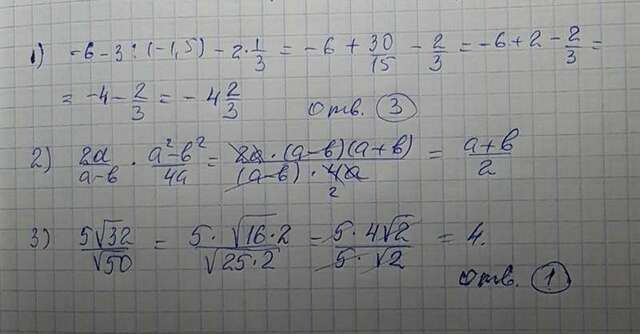 1) -6-3:(-1,5)-2·1/3 = -6+30/15-2/3 = -6+2-2/3 =
= -4-2/3 = -4 2/3 Отв. 3
2) 2a/(a-в) · (a²-в²)/4a = 2a·(a-в)(a+в)/((a-в)·4a) = (a+в)/2
2
3) 5√32/√50 = 5·√16·2/√25·2 = 5·4√2/5·√2 = 4.
Отв. 1